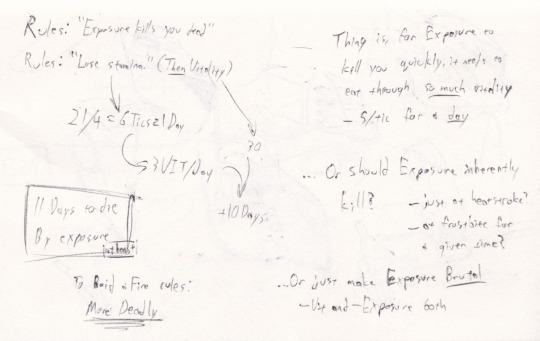 Rules: "Exposure kills you dead"
Rules: "Lose stamina" (Then Vitality)
21/4 = 6 Tics = 1 Day
30
3 VIT/Day
+10 Days
11 Days to die
By exposure
at least
To Boid & Fire rules:
More Deadly
Thing is, for Exposure to
kill you quickly, it needs to
eat through so much vitality
- 5/tic for a day
... Or should Exposure inherently
kill?
- just at heatstroke?
- or frostbite for
a given time?
...Or just make Exposure Brutal
- Vit and - Exposure both